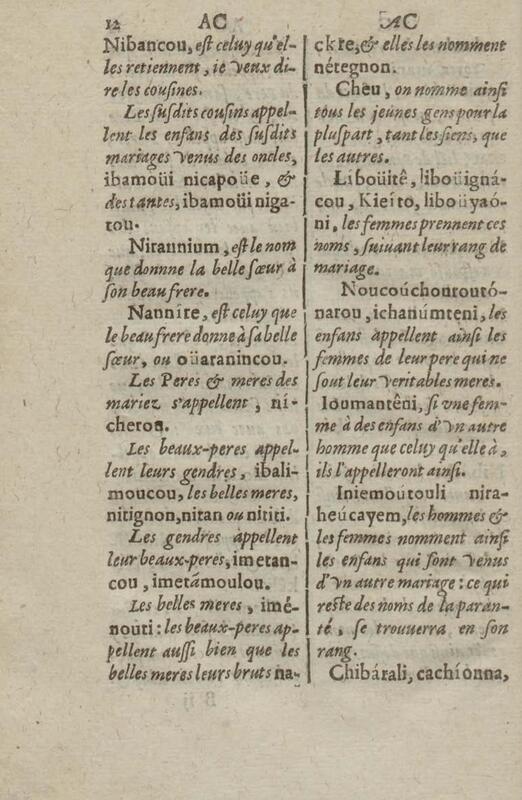 12 AC AC
Nibancou, est celuy qu'el-
les retiennent, ie veux di-
re les cousines.
Les susdits cousins appel-
lent les enfans des susdits
mariages venus des oncles,
ibamoüi nicapoüe, &
des tantes, ibamoüi niga-
tou.
Nitannium, est le nom
que donnne la belle sœur à
son beau frere.
Nannire, est celuy que
le beau frere donne à sa belle
sœur, ou oüaranincou.
Les Peres & meres des
mariez s'appellent, ni-
cheron.
Les beaux-peres appel-
lent leurs gendres, ibali-
moucou, les belles meres,
nitignon, nitan ou nititi.
Les gendres appellent
leur beaux-peres, imetan-
cou, imetámoulou.
Les belles meres, imé-
nouti: les beaux-peres ap-
pellent aussi bien que les
belles meres leurs bruts na-
ckre, & elles les nomment
nétegnon.
Cheu, on nomme ainsi
tous les jeunes gens pour la
pluspart, tant les siens, que
les autres.
Liboüitê, liboüigná-
cou, Kieito, liboüyaó-
ni, les femmes prennent ces
noms, suiuant leur rang de
mariage.
Noucoúchouroutó-
narou, ichanúmteni, les
enfans appellent ainsi les
femmes de leur pere qui ne
sout leur veritables meres.
Ioumantêni, si vne fem-
me à des enfans d'vn autre
homme que celuy qu'elle à,
ils l'appelleront ainsi.
Iniemoútouli nira-
heúcayem, les hommes &
les femmes nomment ainsi
les enfans qui sont venus
d'vn autre mariage: ce qui
reste des noms de la paran-
té, se trouuerra en son
rang.
Chibárali, cachíonna,